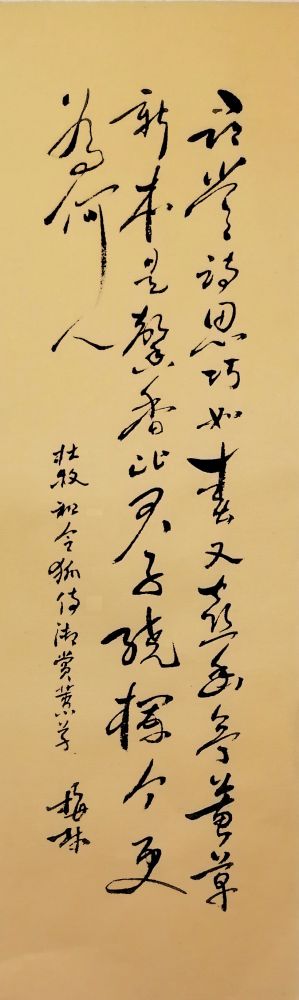 尋常詩思巧如春又喜幽亭蕙草
新本是馨香比君子繞欄今更
為何人
杜牧和令狐侍御賞蕙草